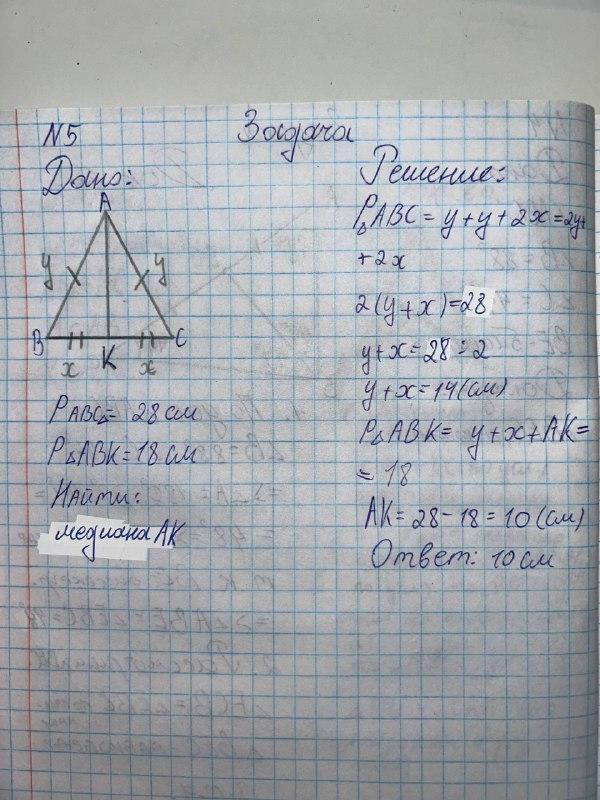 N5 Задача
Дано:
A
y y
B K C
x x
PABC△= 28 см
P△ABK=18 см
Найти:
медиана AK
Решение:
P△ABC= y+y+2x=2y+
+2x
2(y+x)=28
y+x=28:2
y+x=14(см)
P△ABK= y+x+AK=
= 18
AK= 28-18=10(см)
Ответ: 10 см